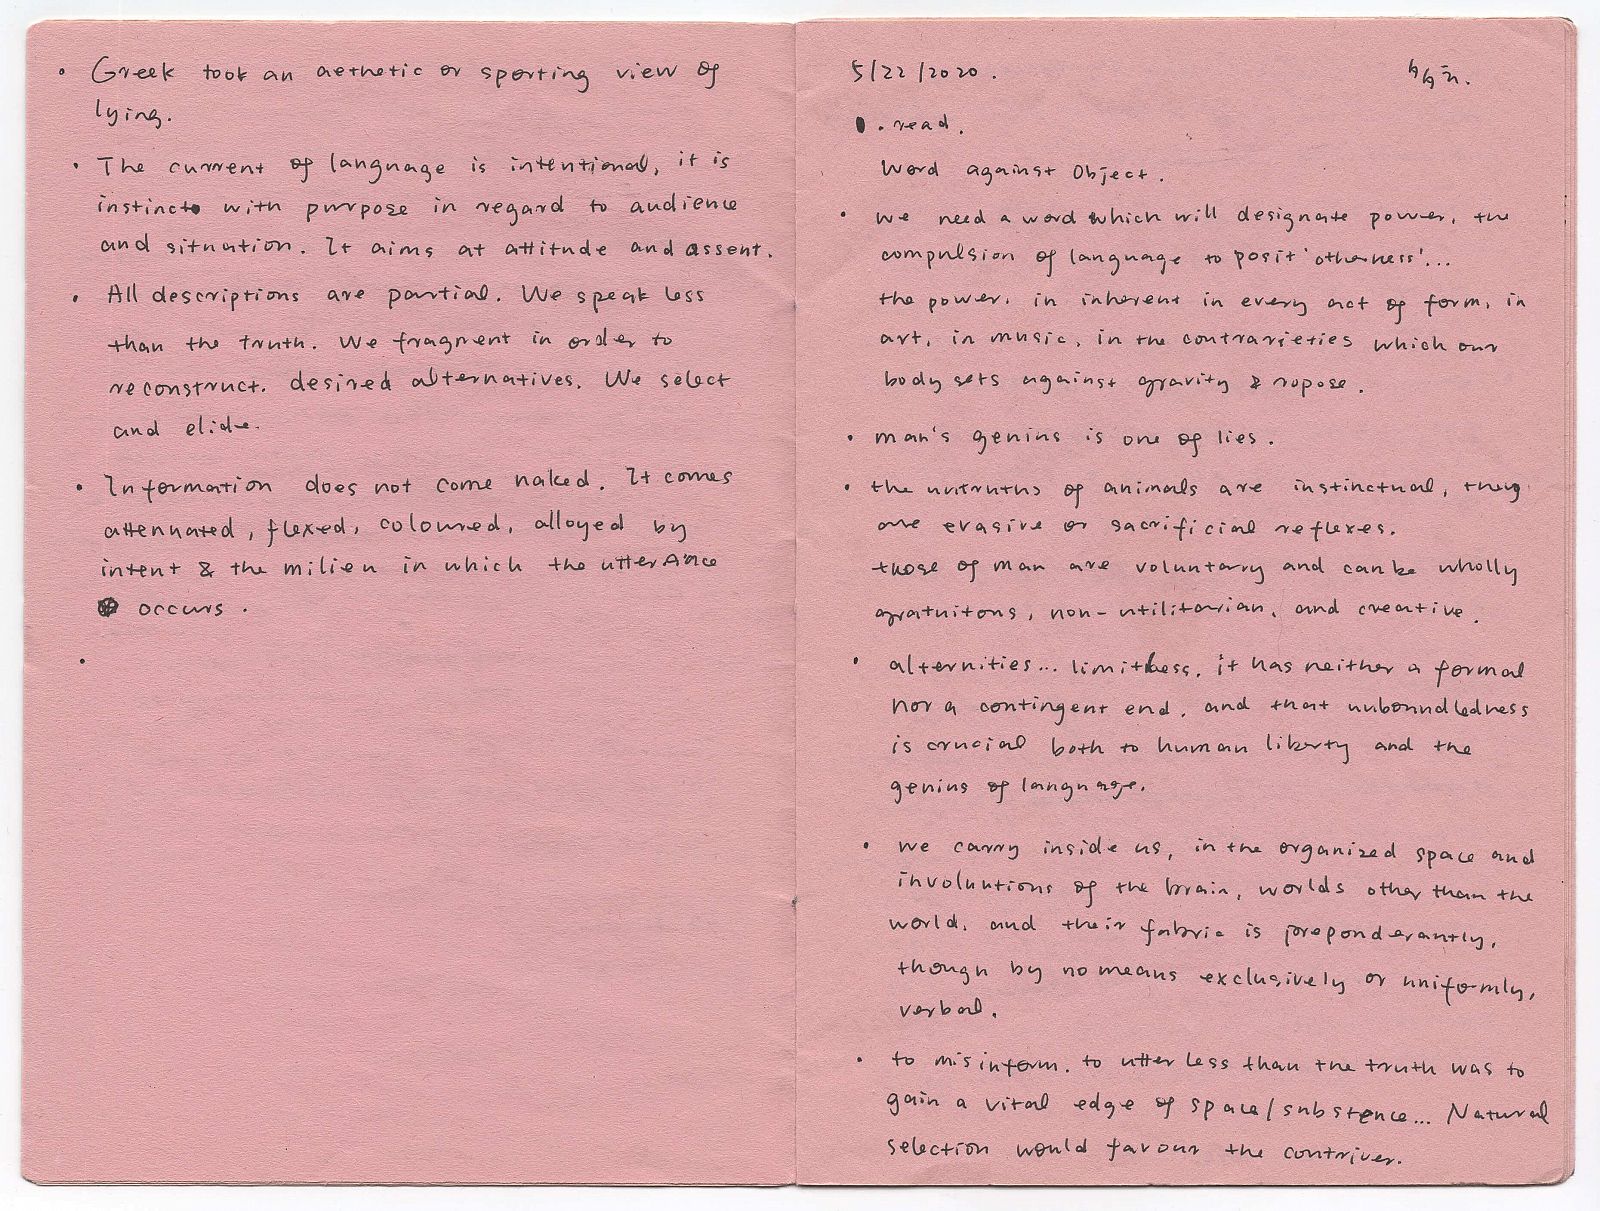 • Greek took an aethetic or sporting view of
lying.
• The current of language is intentional, it is
instinct with purpose in regard to audience
and situation. It aims at attitude and assent.
• All descriptions are partial. We speak less
than the truth. We fragment in order to
reconstruct. desired alternatives. We select
and elide.
• Information does not come naked. It comes
attenuated, flexed, coloured, alloyed by
intent & the milieu in which the utterance
occurs.
•
5/22/2020.
• read.
Word against Object.
• we need a word which will designate power, the
compulsion of language to posit 'otherness'...
the power. in inherent in every act of form, in
art, in music, in the contrarieties which our
body sets against gravity & repose.
• man's genius is one of lies.
• the untruths of animals are instinctual, they
are evasive or sacrificial reflexes.
those of man are voluntary and can be wholly
gratuitous, non-utilitarian, and creative.
• alternities... limitless, it has neither a formal
nor a contingent end. and that unboundledness
is crucial both to human liberty and the
genius of language.
• we carry inside us, in the organized space and
involuntions of the brain, worlds other than the
world, and their fabric is preponderantly,
though by no means exclusively or uniformly,
verbal.
• to misinform. to utter less than the truth was to
gain a vital edge of space/substence... Natural
selection would favour the contriver.